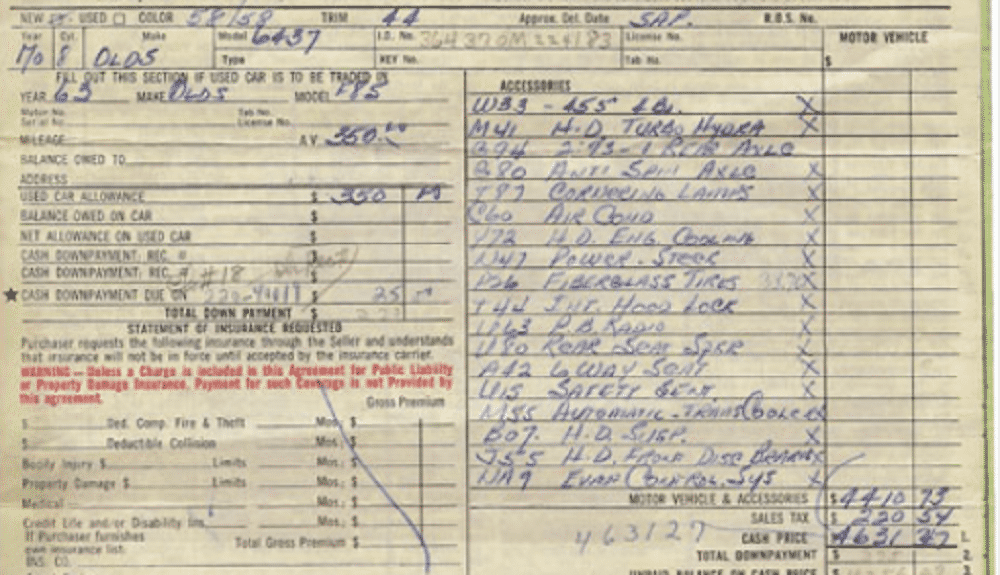 NEW USED □ COLOR 58/58 TRIM 44 Approx. Del. Date SAP. R.O.S. No.
Year Cyl. Make Model 6437 I.D. No. 364370M224183 License No. MOTOR VEHICLE
70 8 OLDS Type KEY No. Tab No. $
FILL OUT THIS SECTION IF USED CAR IS TO BE TRADED IN
YEAR 63 MAKE OLDS MODEL F85
Motor No. Tab No.
Serial No. License No.
MILEAGE AV 350.00
BALANCE OWED TO
ADDRESS
USED CAR ALLOWANCE $ 350
BALANCE OWED ON CAR $
NET ALLOWANCE ON USED CAR $
CASH DOWNPAYMENT: REC. # $
CASH DOWNPAYMENT: REC. #18 $
★ CASH DOWNPAYMENT DUE ON $ 25
TOTAL DOWN PAYMENT $
STATEMENT OF INSURANCE REQUESTED
Purchaser requests the following insurance through the Seller and understands
that insurance will not be in force until accepted by the insurance carrier.
WARNING—Unless a Charge is included in this Agreement for Public Liability
or Property Damage Insurance, Payment for such Coverage is not Provided by
this agreement.
Gross Premium
$ Ded. Comp. Fire & Theft Mos. $
$ Deductible Collision Mos. $
Bodily Injury $ Limits Mos. $
Property Damage $ Limits Mos. $
Medical Mos. $
Credit Life and/or Disability Ins. Mos. $
If Purchaser furnishes
own insurance list: Total Gross Premium $
INS. CO.
ACCESSORIES
W33 - 455 4 BL. X
M41 H.D. TURBO HYDRA X
G94 2:93-1 REAR AXLE
G80 ANTI SPIN AXLE X
T87 CORNERING LAMPS X
C60 AIR COND X
Y72 H.D. ENG. COOLING X
N47 POWER. STEER X
P56 FIBERGLASS TIRES X
Y44 INT. HOOD LOCK X
U63 P.B. RADIO X
U80 REAR SEAT SPKR X
A42 6 WAY SEAT X
U15 SAFETY SENT. X
M55 AUTOMATIC-TRANS COOLER X
B07. H.D. SUSP. X
J55 H.D. FRONT DISC BRAKES X
NA9 EVAP CONTROL SYS X
MOTOR VEHICLE & ACCESSORIES $ 4410 93
SALES TAX $ 220 54
463127 CASH PRICE $ 4631 47 1.
TOTAL DOWNPAYMENT $ 2.
UNPAID BALANCE ON CASH PRICE $ 3.